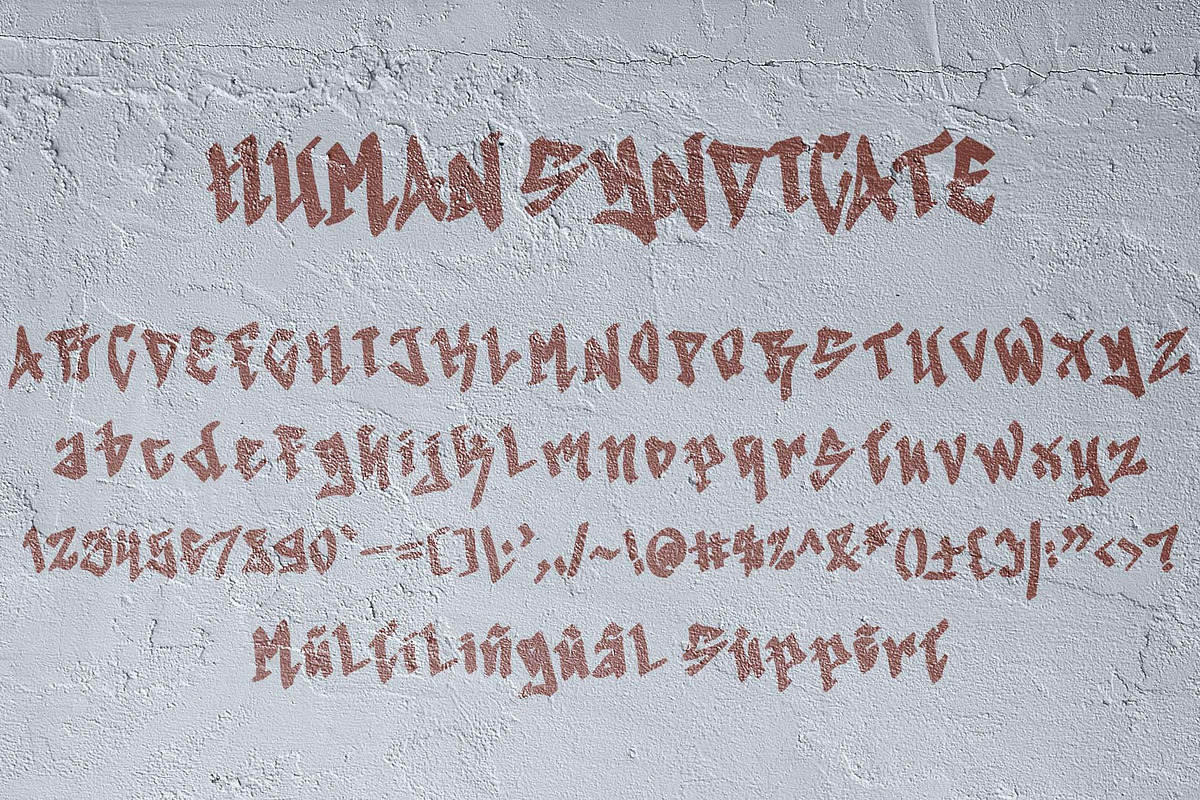 HUMAN SYNDICATE
ABCDEFGHIJKLMNOPQRSTUVWXYZ
abcdefghijklmnopqrstuvwxyz
1234567890`-=[]\;',./~!@#$%^&*()±{}|:"<>?
Múltílíñgüâl Süppërt